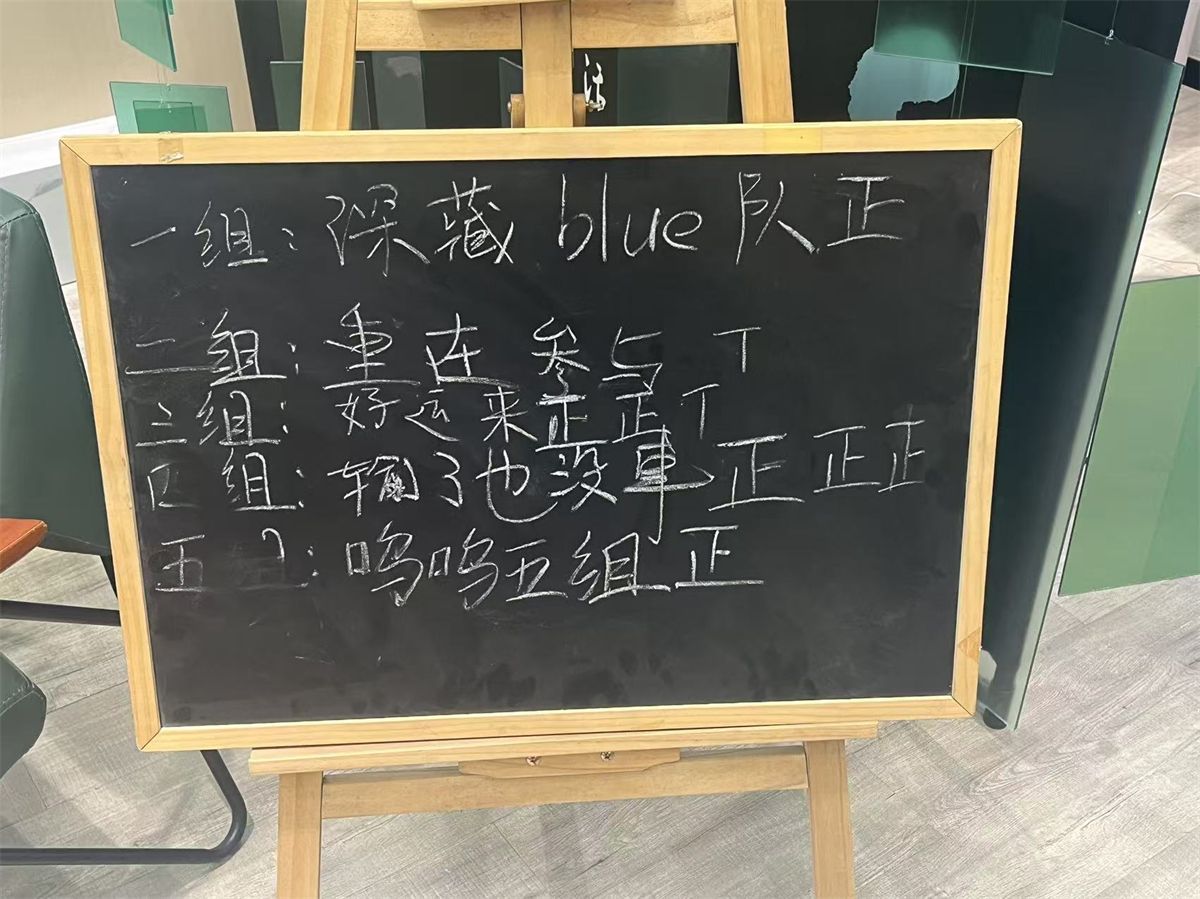 一组：深藏blue队 正
二组：重在参与 丅
三组：好运来 正正丅
四组：输了也没事 正正正
五组：呜呜五组 正